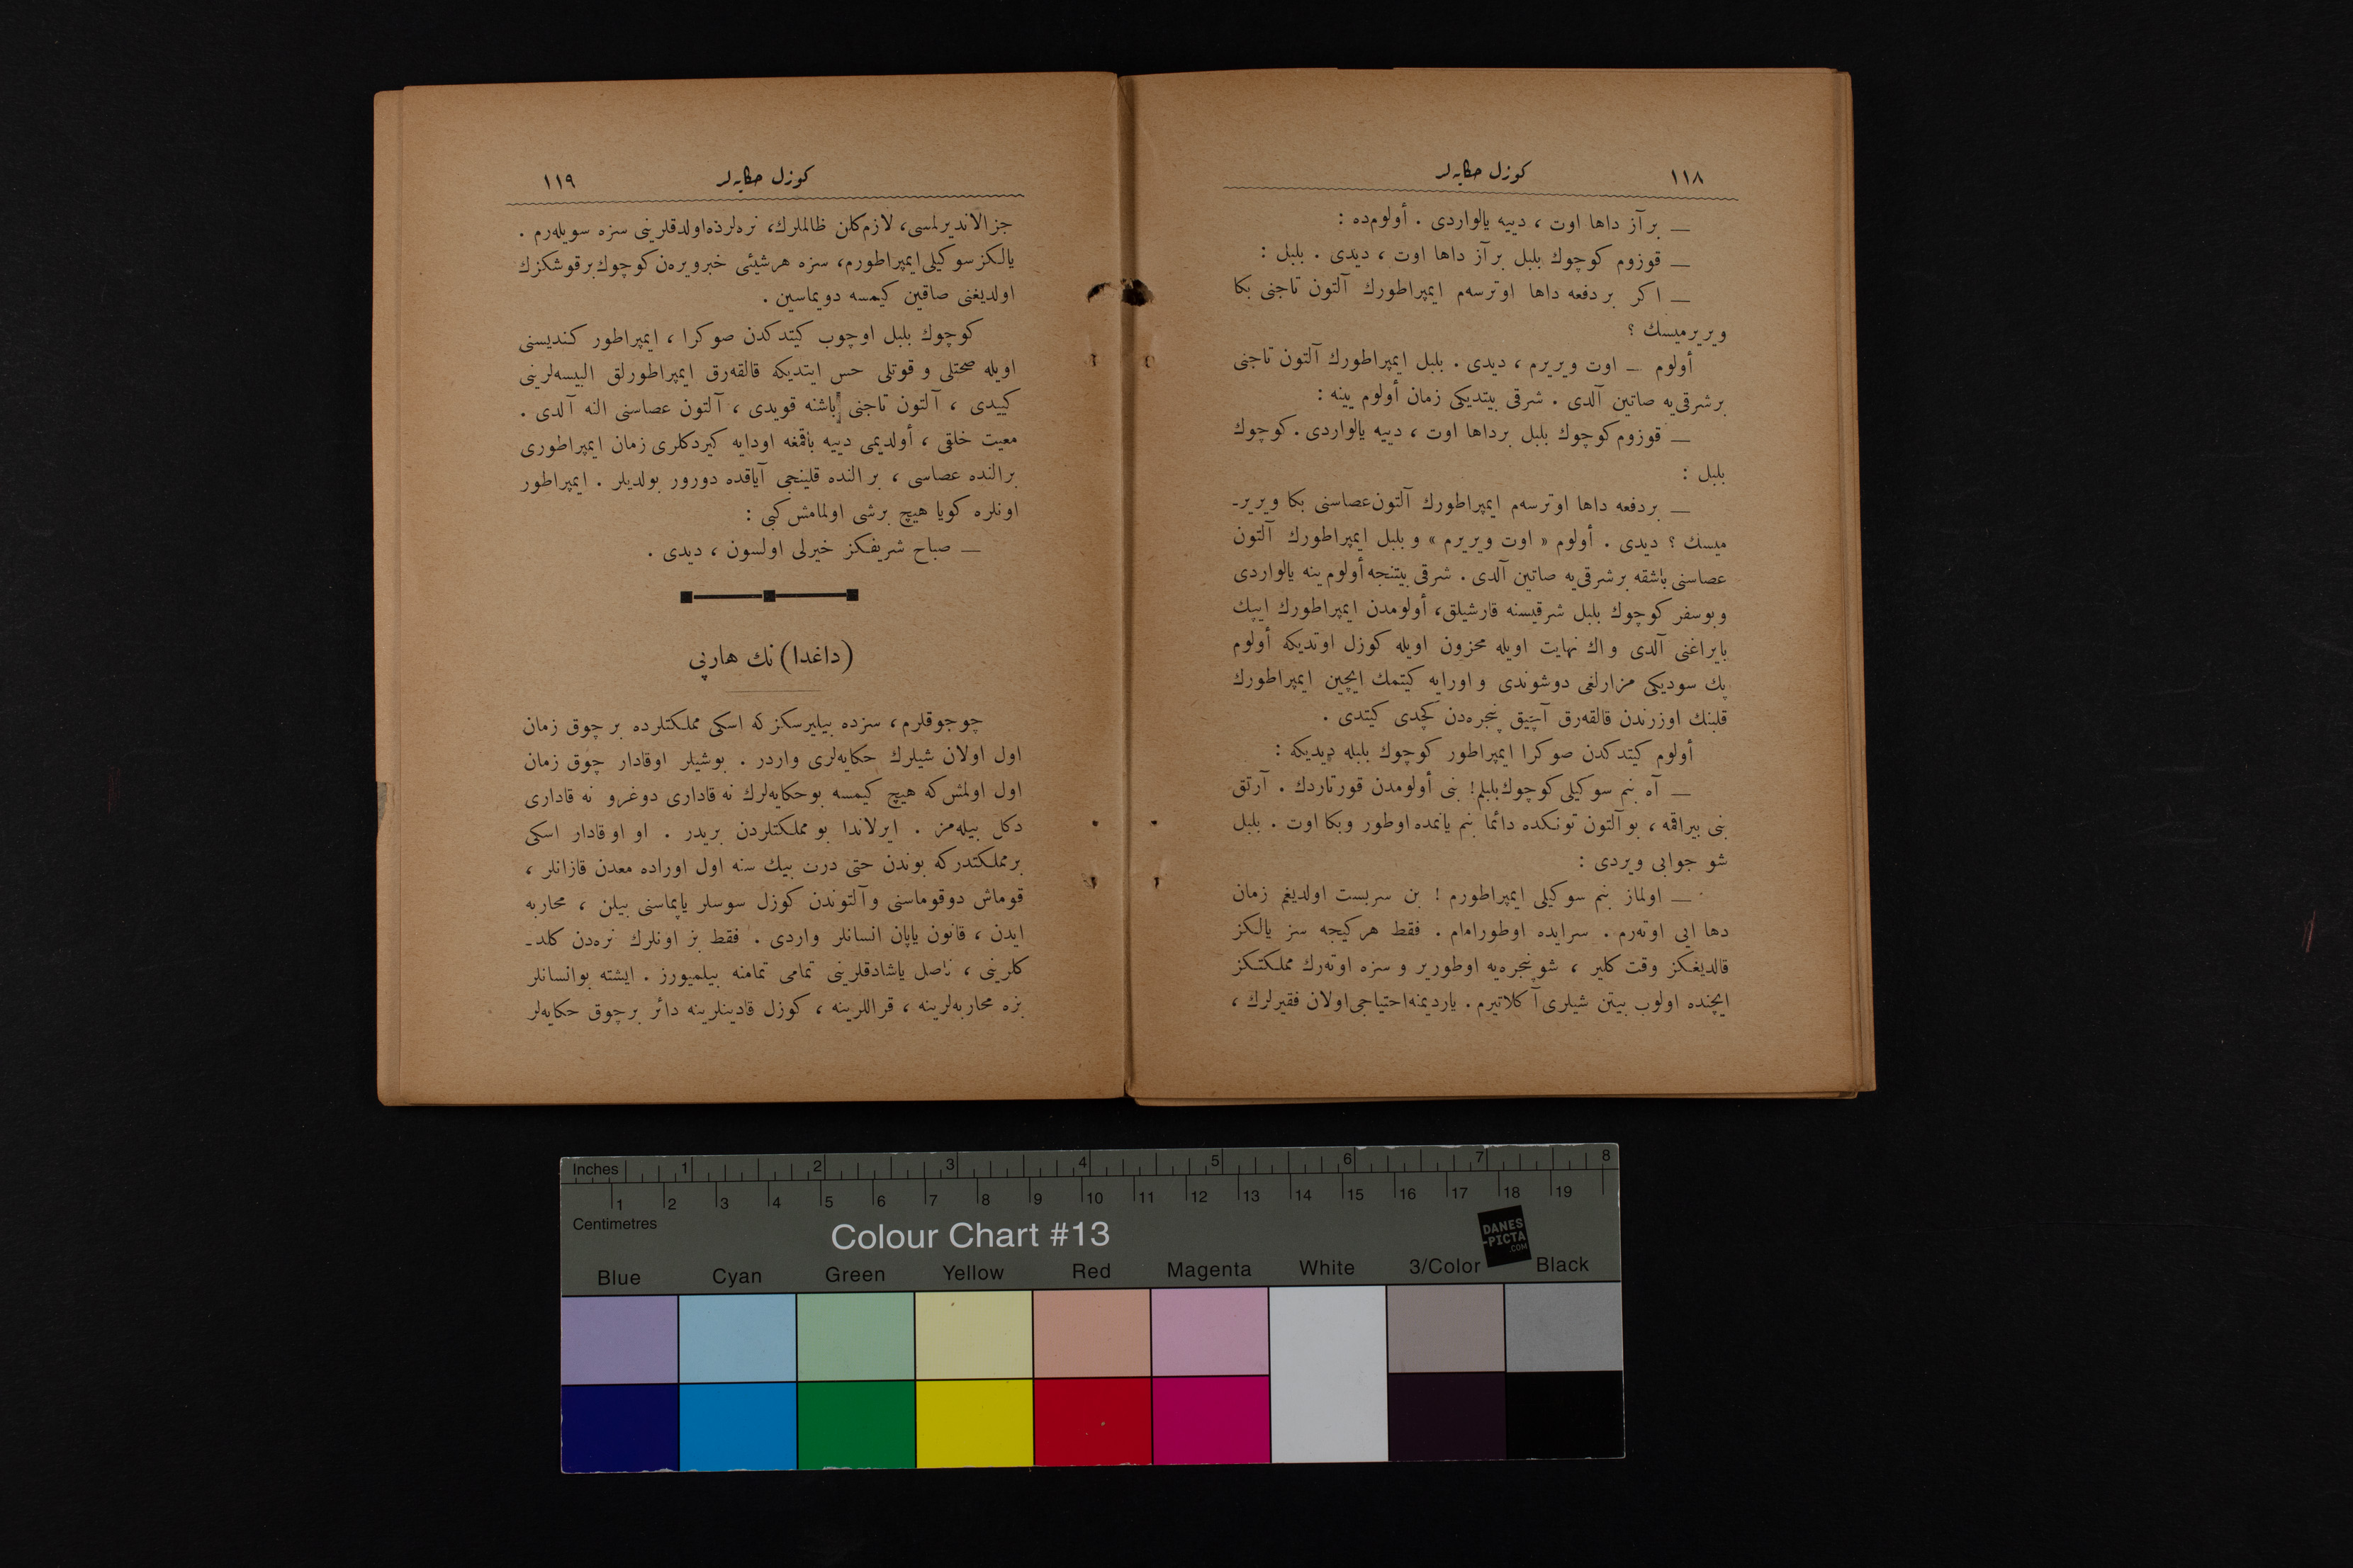 ١١٨
كوزل حكايه‌لر
— بر آز داها اوت ، دييه يالواردى . أولوم‌ده :
— قوزوم كوچوك بلبل بر آز داها اوت ، ديدى . بلبل :
— اكر بر دفعه داها اوترسه‌م ايمپراطورك آلتون تاجنى بكا
ويريرميسك ؟
أولوم — اوت ويريرم ، ديدى . بلبل ايمپراطورك آلتون تاجنى
برشرقى‌يه صاتين آلدى . شرقى بيتديكى زمان أولوم يينه :
— قوزوم كوچوك بلبل برداها اوت ، دييه يالواردى . كوچوك
بلبل :
— بردفعه داها اوترسه‌م ايمپراطورك آلتون عصاسنى بكا ويرير-
ميسك ؟ ديدى . أولوم « اوت ويريرم » و بلبل ايمپراطورك آلتون
عصاسنى باشقه برشرقى‌يه صاتين آلدى . شرقى بيتنجه أولوم ينه يالواردى
وبوسفر كوچوك بلبل شرقيسنه قارشيلق، أولومدن ايمپراطورك ايپك
بايراغنى آلدى و اك نهايت اويله محزون اويله كوزل اوتديكه أولوم
پك سوديكى مزارلغى دوشوندى و اورايه كيتمك ايچين ايمپراطورك
قلبنك اوزرندن قالقه‌رق آچيق پنجره‌دن كچدى كيتدى .
أولوم كيتدكدن صوكرا ايمپراطور كوچوك بلبله ديديكه :
— آه بنم سوكيلى كوچوك بلبلم! بنى أولومدن قورتاردك . آرتق
بنى بيراقمه ، بو آلتون تونكده دائما بنم يانمده اوطور وبكا اوت . بلبل
شو جوابى ويردى :
— اولماز بنم سوكيلى ايمپراطورم ! بن سربست اولديغم زمان
دها ايى اوته‌رم . سرايده اوطورامام . فقط هركيجه سز يالكز
قالديغكز وقت كلير ، شو پنجره‌يه اوطورير و سزه اوته‌رك مملكتكز
ايچنده اولوب بيتن شيلرى آكلاتيرم . يارديمنه احتياجى اولان فقيرلرك ،
كوزل حكايه‌لر
١١٩
جزالانديرلمسى، لازم كلن ظالملرك، نره‌لرده اولدقلرينى سزه سويله‌رم .
يالكز سوكيلى ايمپراطورم، سزه هرشيئى خبرويره‌ن كوچوك برقوشكزك
اولديغنى صاقين كيمسه دويماسين .
كوچوك بلبل اوچوب كيتدكدن صوكرا ، ايمپراطور كنديسنى
اويله صحتلى و قوتلى حس ايتديكه قالقه‌رق ايمپراطورلق البيسه‌لرينى
كييدى ، آلتون تاجنى باشنه قويدى ، آلتون عصاسنى النه آلدى .
معيت خلقى ، أولديمى دييه باقمغه اودايه كيردكلرى زمان ايمپراطورى
برالنده عصاسى ، برالنده قلينجى آياقده دورور بولديلر . ايمپراطور
اونلره كويا هيچ برشى اولمامش كبى :
— صباح شريفكز خيرلى اولسون ، ديدى .
(داغدا) نك هارپى
چوجوقلرم ، سزده بيليرسكز كه اسكى مملكتلرده بر چوق زمان
اول اولان شيلرك حكايه‌لرى واردر . بوشيلر اوقادار چوق زمان
اول اولمش كه هيچ كيمسه بوحكايه‌لرك نه قادارى دوغرو نه قادارى
دكل بيله‌مز . ايرلاندا بو مملكتلردن بريدر . او اوقادار اسكى
برمملكتدر كه بوندن حتى درت بيك سنه اول اوراده معدن قازانلر ،
قوماش دوقوماسنى وآلتوندن كوزل سوسلر ياپماسنى بيلن ، محاربه
ايدن ، قانون ياپان انسانلر واردى . فقط بز اونلرك نره‌دن كلد-
كلرينى ، ناصل ياشادقلرينى تمامى تمامنه بيلميورز . ايشته بوانسانلر
بزه محاربه‌لرينه ، قراللرينه ، كوزل قادينلرينه دائر برچوق حكايه‌لر
Inches 1 2 3 4 5 6 7 8
1 2 3 4 5 6 7 8 9 10 11 12 13 14 15 16 17 18 19
Centimetres
Colour Chart #13
DANES
-PICTA
.COM
Blue Cyan Green Yellow Red Magenta White 3/Color Black